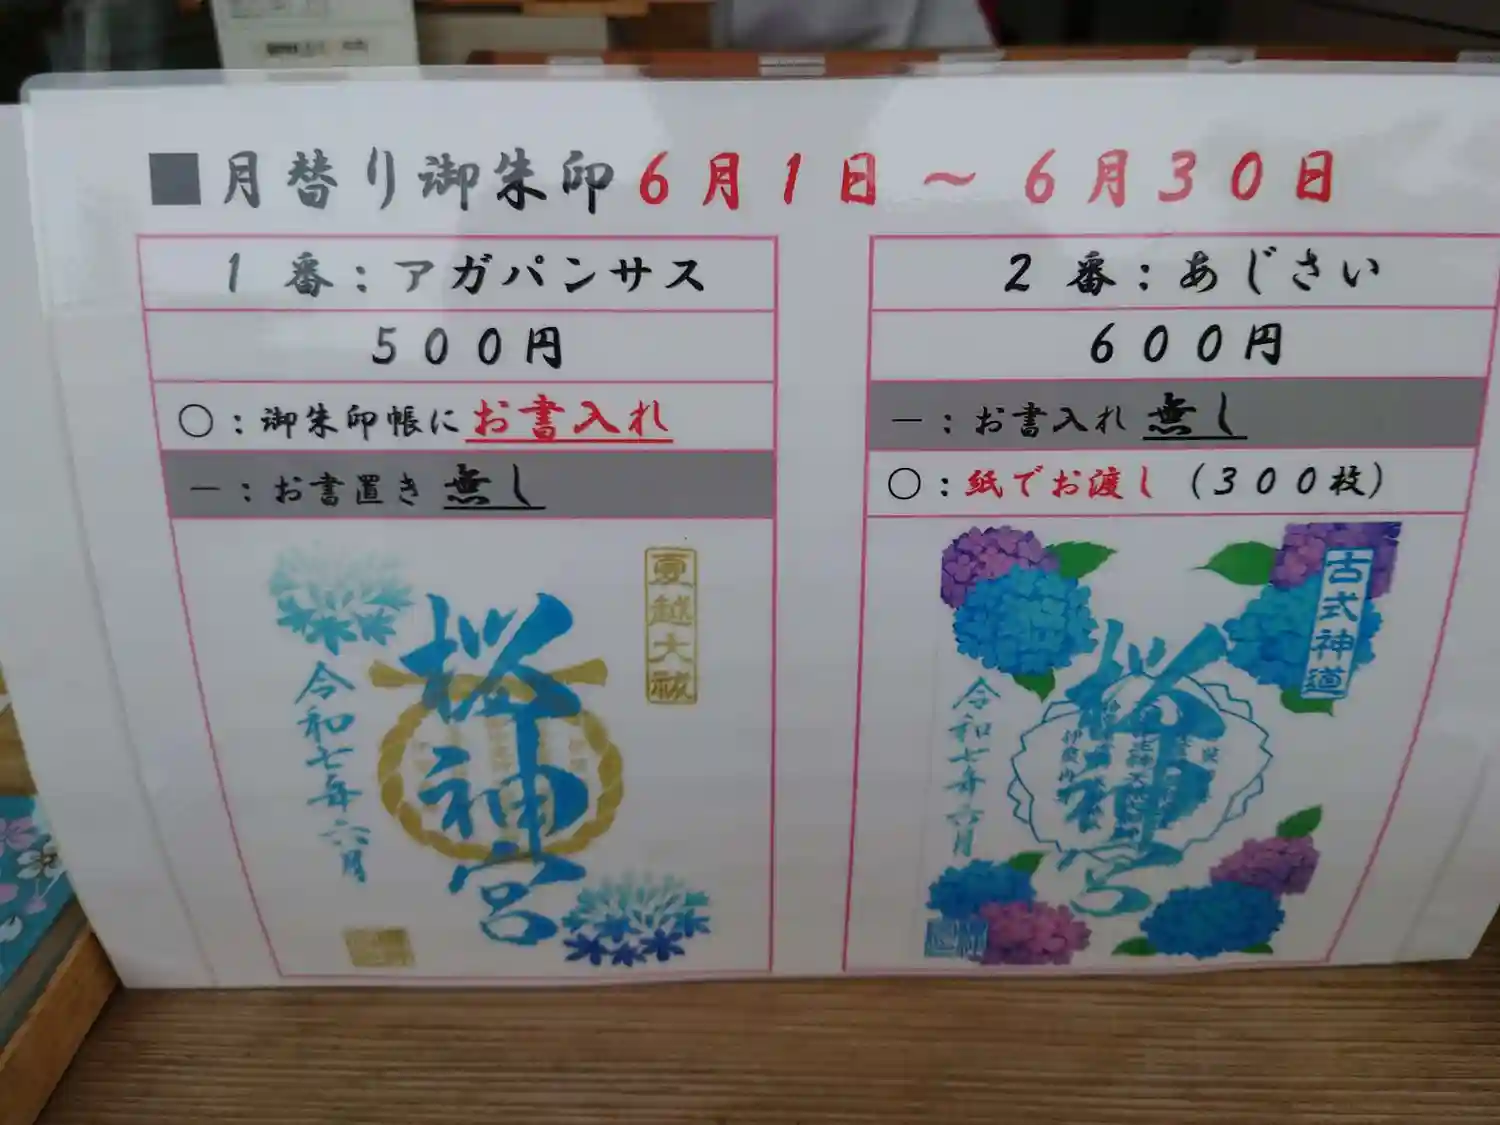 ■月替り御朱印6月1日～6月30日
1番：アガパンサス
500円
○：御朱印帳にお書入れ
－：お書置き無し
夏越大祓
桜神宮
令和七年六月
2番：あじさい
600円
－：お書入れ無し
○：紙でお渡し（300枚）
古式神道
桜神宮
令和七年六月